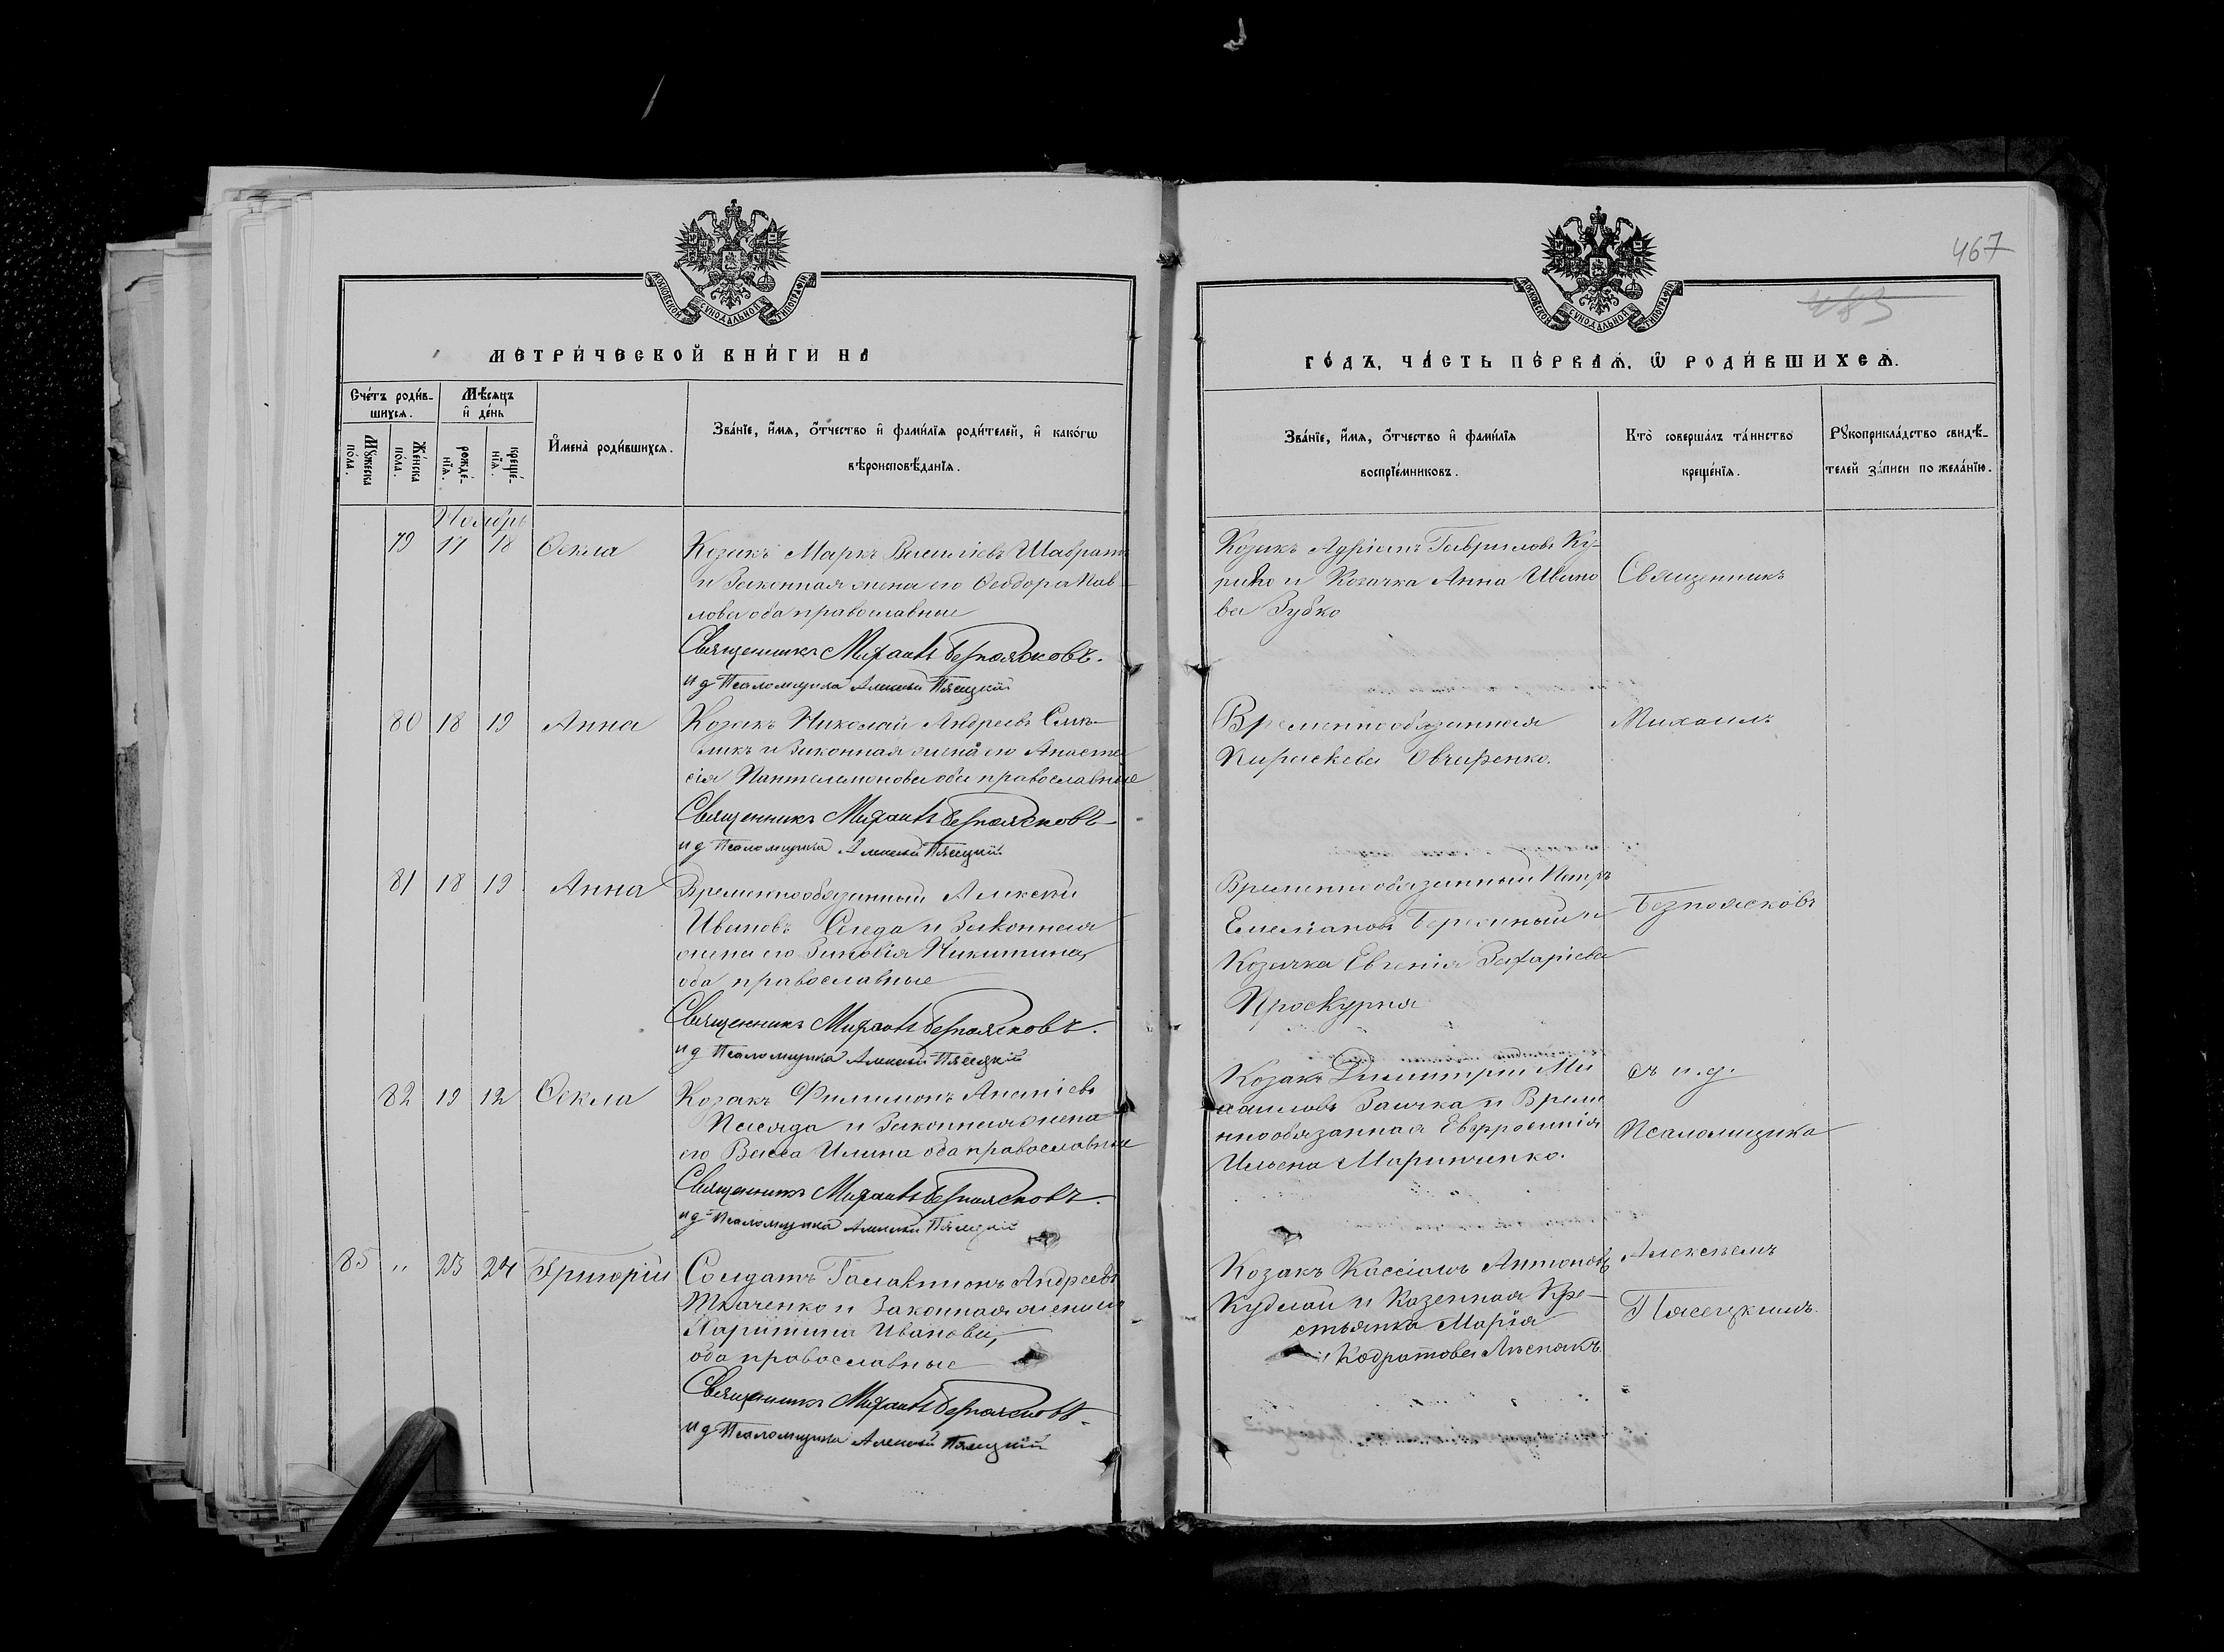 467
483
МОСКОВСКОЙ СУНОДАЛЬНОЙ ТИПОГРАФІИ
МОСКОВСКОЙ СУНОДАЛЬНОЙ ТИПОГРАФІИ
МЕТРИ́ЧЕСКОЙ КНИ́ГИ НА
ГО́ДЪ, ЧА́СТЬ ПЕ́РВАѦ, Ѡ РОДИ́ВШИХСѦ.
Сче́тъ роди́в-
шихсѧ.
Мѣ́сѧцъ
и҆ де́нь
Мꙋ́жеска
по́ла.
Же́нска
по́ла.
рожде́-
нїѧ.
креще́-
нїѧ.
И҆мена̀ роди́вшихсѧ.
Зва́нїе, и҆́мѧ, ѻ҆́тчество и҆ фами́лїѧ роди́телей, и҆ како́гѡ
вѣроисповѣ́данїѧ.
Зва́нїе, и҆́мѧ, ѻ҆́тчество и҆ фами́лїѧ
воспрїе́мниковъ.
Кто̀ соверша́лъ та́инство
креще́нїѧ.
Рꙋкоприкла́дство свидѣ́-
телей за́писи по жела́нїю.
Ноябрь
79 17 18 Ѳекла
Козакъ Маркъ Василіевъ
и Законная жена его Ѳеодора Пав-
лова оба православные
Священникъ Михаилъ Безпоясковъ.
и д Псаломщика Алексѣй Пясецкій
Козакъ Адріанъ Гавриловъ Ку-
рило и Козачка Анна Ивано
ва Зубко
Священникъ
80 18 19 Анна
Козакъ Николай Андреевъ
и Законная жена его Анаста
сія Пантелимонова оба православные
Священникъ Михаилъ Безпоясковъ
и д Псаломщика Алексѣй Пясецкій
Временнообязанная
Параскева Овчаренко.
Михаилъ
81 18 19 Анна
Временнообязанный Алексѣй
Ивановъ и Законная
жена его Зиновія Никитина,
оба православные
Священникъ Михаилъ Безпоясковъ.
и д Псаломщика Алексѣй Пясецкій
Временнообязанный Петръ
Емеліановъ и
Козачка Евгенія Захаріева
Проскурня
Безпоясковъ
82 19 12 Ѳекла
Козакъ Филимонъ Ананіевъ
и Законная жена
его Васса Ильина оба православные
Священникъ Михаилъ Безпоясковъ.
и д Псаломщика Алексѣй Пясецкій
Козакъ Димитрій Ми
хаиловъ Заичка и Време
ннообязанная Евфросинія
Ильена Маринченко.
съ и. д.
Псаломщика
85 „ 23 24 Григорій
Солдатъ Галактіонъ Андреевъ
Ткаченко и Законная жена его
Харитина Иванова,
оба православные
Священникъ Михаилъ Безпоясковъ.
и д Псаломщика Алексѣй Пясецкій
Козакъ Кассіанъ Антоновъ
Кудлай и Казенная Кре-
стьянка Марія
Кодратова
Алексѣемъ
Пясецкимъ.